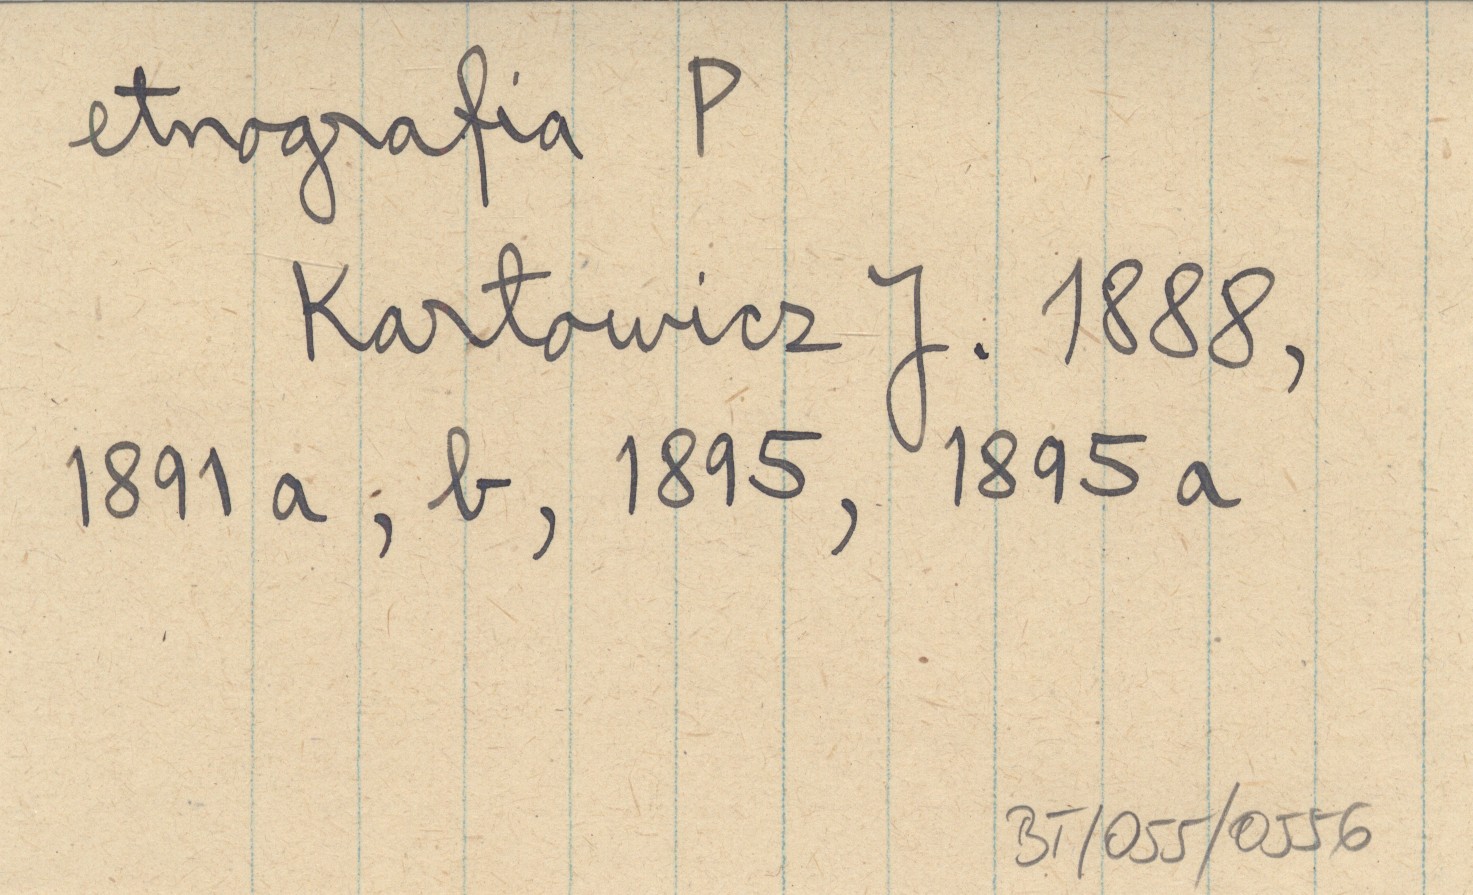 etnografia P
Karłowicz J. 1888,
1891 a, b, 1895, 1895 a
BT/055/0556